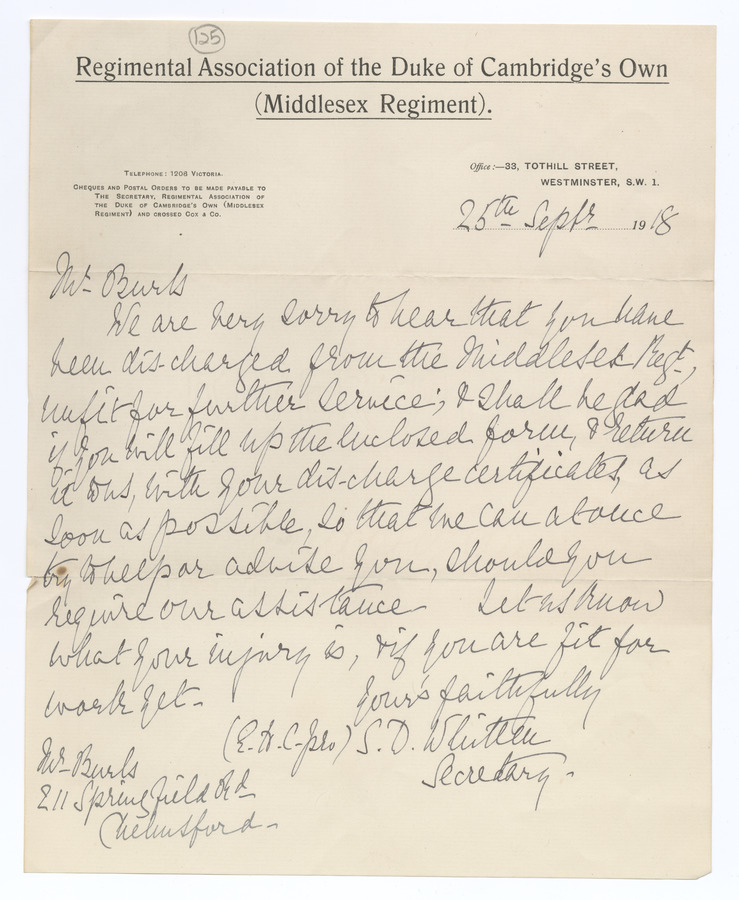 125
Regimental Association of the Duke of Cambridge's Own
(Middlesex Regiment).
TELEPHONE: 1208 VICTORIA.
CHEQUES AND POSTAL ORDERS TO BE MADE PAYABLE TO
THE SECRETARY, REGIMENTAL ASSOCIATION OF
THE DUKE OF CAMBRIDGE'S OWN (MIDDLESEX
REGIMENT) AND CROSSED COX & CO.
Office:—33, TOTHILL STREET,
WESTMINSTER, S.W. 1.
25th Septr 1918
Mr Burls
We are very sorry to hear that you have
been dis-charged from the Middlesex Regt,
unfit for further service; & shall be glad
if you will fill up the enclosed form, & return
it to us, with your dis-charge certificates, as
soon as possible, so that we can at once
try to help or advise you, should you
require our assistance. Let us know
what your injury is, & if you are fit for
work yet.
Yours faithfully
(E.H.C. pro) S. D. Whitten
Secretary.
Mr Burls
211 Springfield Rd
Chelmsford.